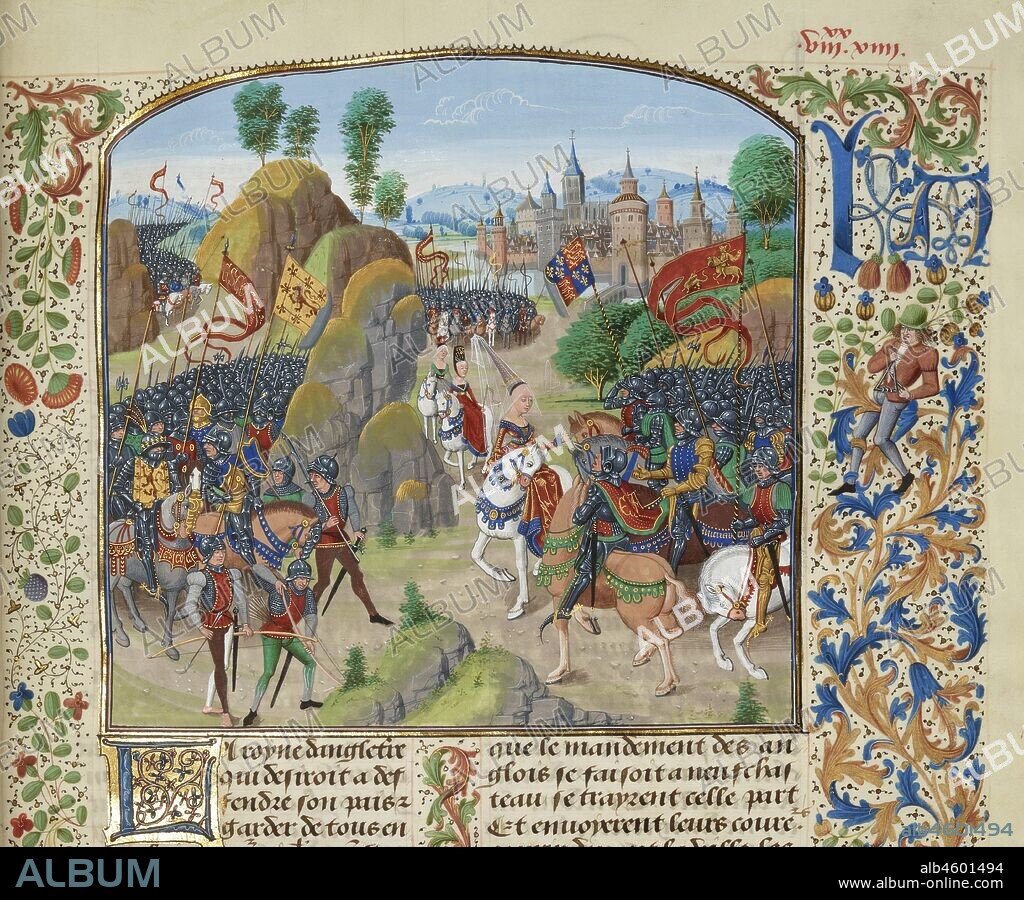 xx
.viii. xviii.
La royne dangleterre
qui desiroit a def
fendre son pais z
garder de tous en
que le mandement des an
glois se faisoit a neuf chas
teau se trayrent celle part
Et envoyerent leurs coure
ALBUM
alb4601494
ALBUM
alb4601494
www.album-online.com